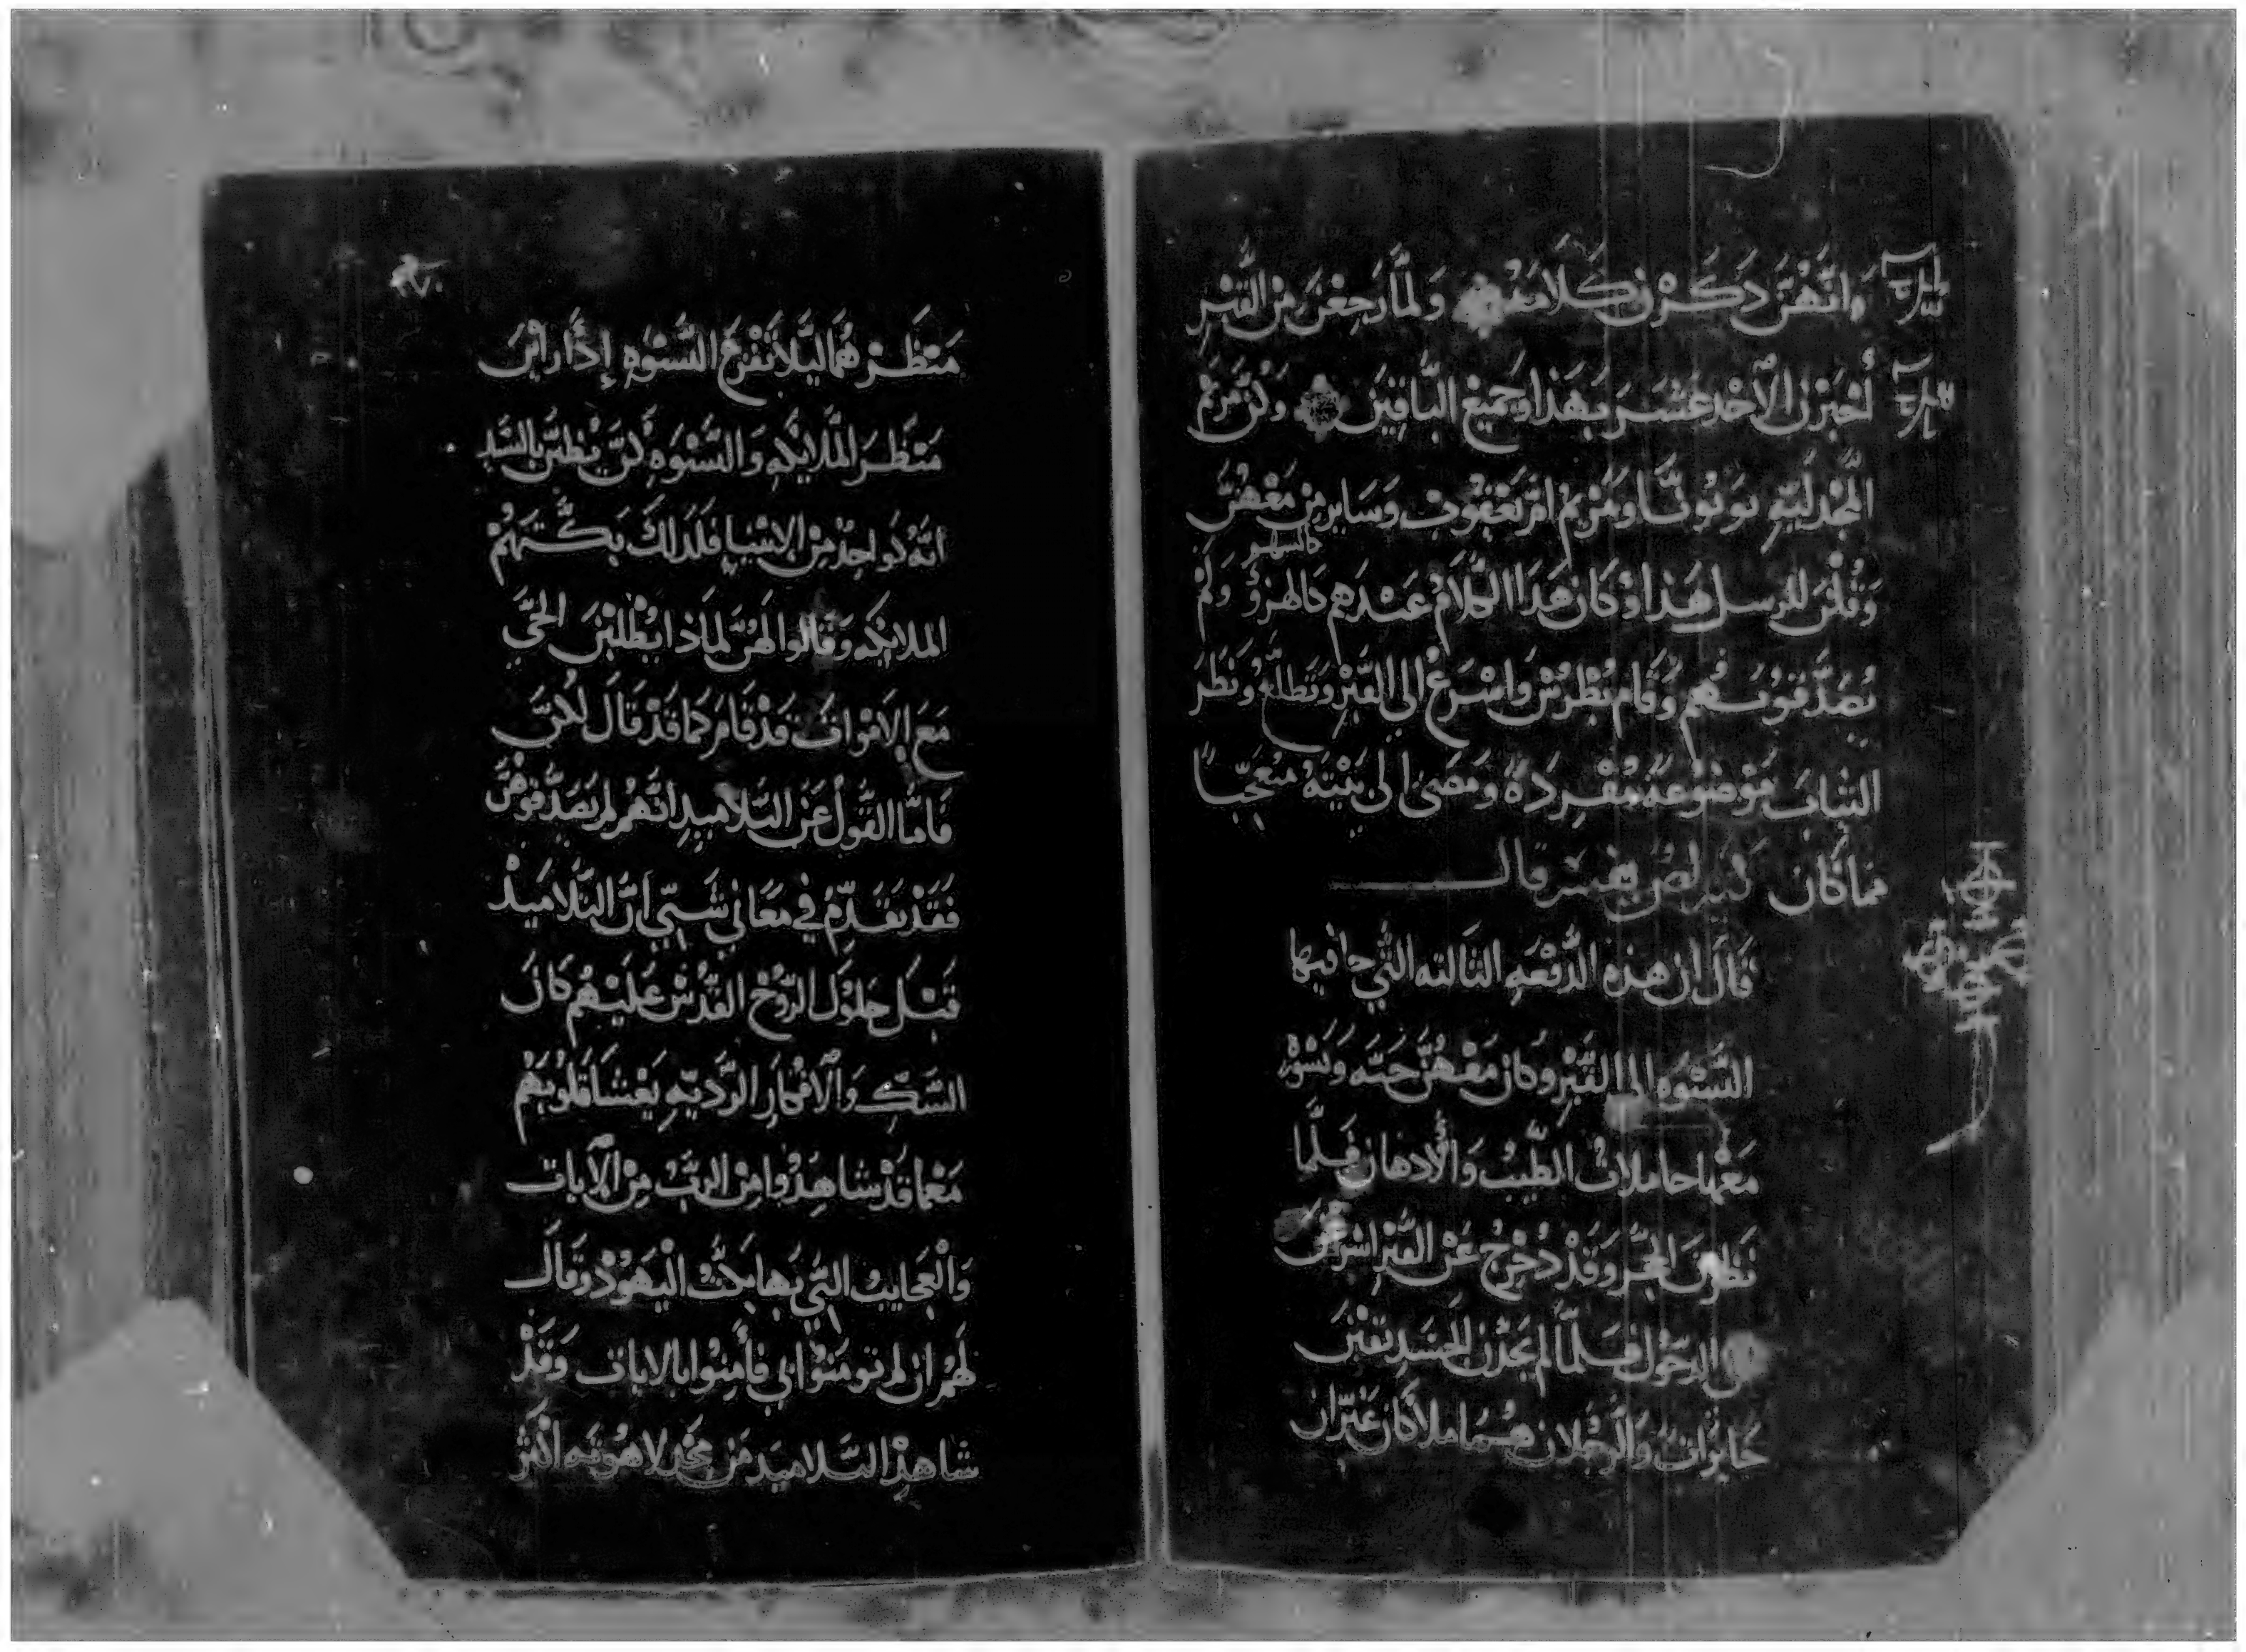 وَانَّهُنَّ ذَكَرْن كَلامَهُ وَلمَّا رَجعْنَ مِنَ القَبْرِ
أخبَرْنَ الآحْدعَشَرَ بهَذا وَجَميْعِ البَّاقِينَ وَكُنَّ مَرْيَم
المَّجْدَليَّهِ وَيُوَنَّا وَمَرْيَمْ امْ يَعْقُوبْ وَسَايرِ مَنْ مَعْهُنَّ
وَقُلْنَ للرسل هَذا وَكان هَذا الكَلامُ عِنْدَهم كالهزؤ وَلمْ
يُصَدَّقوُهُم وَقَام بُطْرُسْ وَاسْرَعْ الي القَبْرْ وَتَطلعْ وَنَظرَ
الثيابَ مَوْضوْعَهً مُفْرَدَهً وَمَضى الى بَيْتِهُ مُتعجّباً
مماكان تفسير قال
قَالَ ان هذهِ الدَّفعَهِ الثالثه التَّي جا فيها
النَّسْوه الى القَبْرِ وَكان مَعْهُنَّ حنَّه وَنسْوَة
مَعْها حاملاتُ الطَّيبُ وَالأدهان فلمّا
نَظرْنَ الحَجَرَ وَقَدْ دُحْرِجْ عَنْ القبْرِ اشرَفنَ
على الدخُول فلمَّا لم يَجدْن الجَسَدِ بَقيْنَ
حَايرَاتْ وَالرجُلان هُمَا ملاكان غَيَّرَان
مَنْظَرْهُما ليلا تَفْزَعْ النَّسْوَهِ إذا رَايْنَ
مَنْظَرَ المَّلايكه وَالنَّسْوَهِ كنَّ يَظنَّنَ بالسَّيد
انَّهُ كواحِدْ مِنْ الانبيا فلذلكَ بَكَّتَهُمْ
الملايكه وَقالوا لهُنَّ لماذا يَطلبْنَ الحَّي
مَعَ الامْوات قَدْ قَامَ كما قدْ قالَ لكُنَّ
فَامَّا القَّول عَنْ التَّلاميدِ انَّهُمْ لم يَصَدَّقوهُنَّ
فَقَدْ تقَدَّمُ في مَعَاني شَتّي أنَّ التَّلامَيدْ
قَبْل حَلوْلَ الرّوْحُ القُّدُسْ عَليْهُم كَان
الشَّك وَالافكارِ الرَّديّهِ يَغشَا قَلوُبَهْم
مَعْما قَدْ شاهدُوا مِنْ الربُّ مِنْ الآيات
وَالْعَجايبْ التَّي بَها بَكّتْ اليْهَوُدْ وَقَالَ
لَهُمْ ان لم تومَنوْا بي فأمِنوْا بالايات وَقَدْ
شاهدْ التَّلاميدَ مَنْ مجْد لاهُوتَه اكثرْ